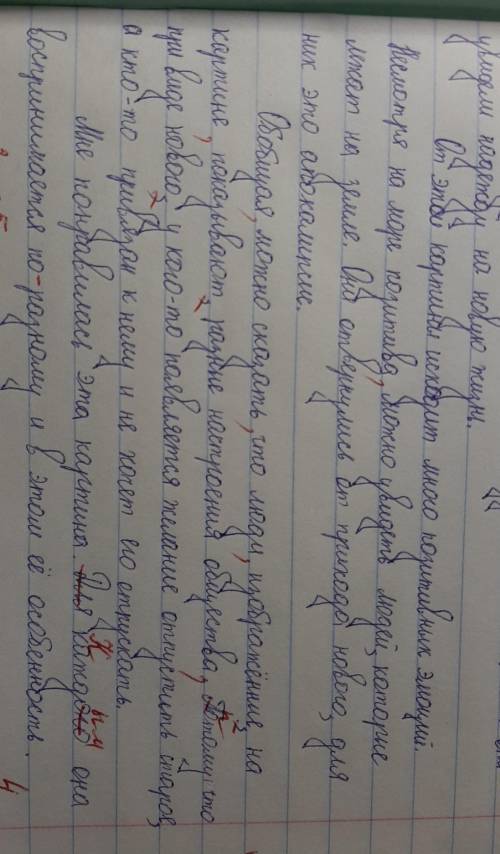 увидели надежду на новую жизнь.
От этой картины исходит много позитивных эмоций.
Несмотря на море позитива, можно увидеть людей, которые
лежат на земле. Они отвернулись от прихода нового, для
них это апокалипсис.
Обобщая, можно сказать, что люди, изображённые на
картине, показывают разные настроения общества, потому что
при виде нового у кого-то появляется желание отпустить старое,
а кто-то привязан к нему и не хочет его отпускать.
Мне понравилась эта картина. Для каждого она
воспринимается по-разному и в этом её особенность.
4